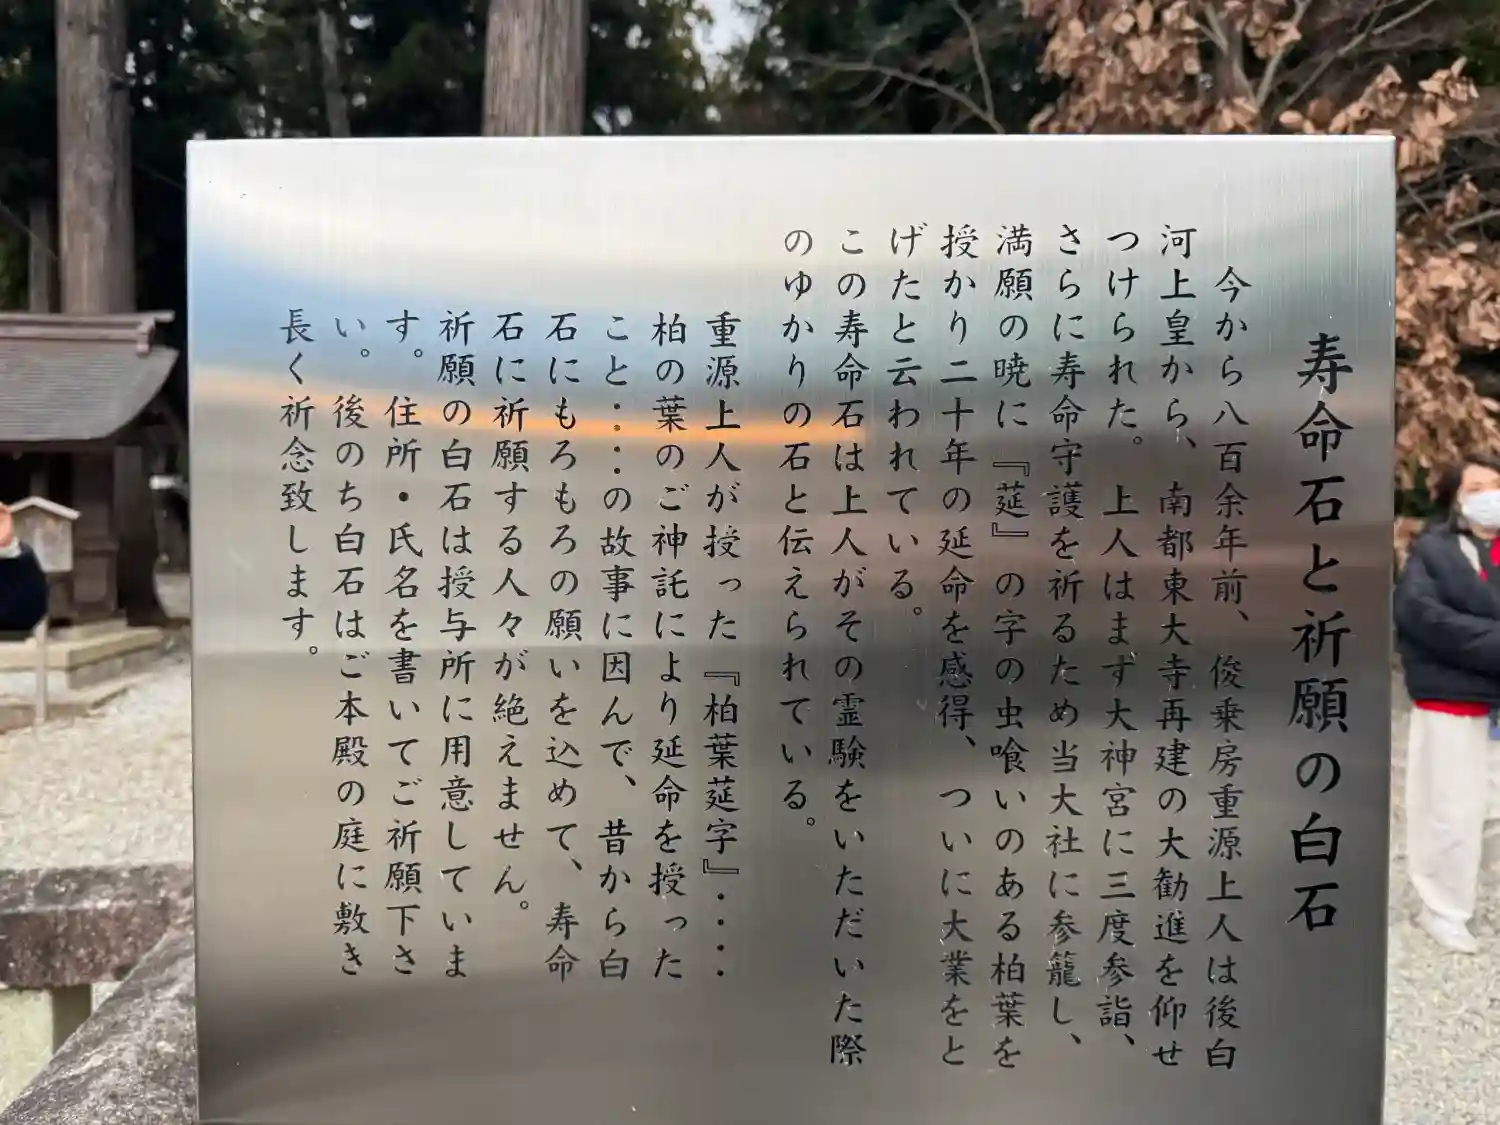 寿命石と祈願の白石
今から八百余年前、俊乗房重源上人は後白
河上皇から、南都東大寺再建の大勧進を仰せ
つけられた。上人はまず大神宮に三度参詣、
さらに寿命守護を祈るため当大社に参籠し、
満願の暁に『莚』の字の虫喰いのある柏葉を
授かり二十年の延命を感得、ついに大業をと
げたと云われている。
この寿命石は上人がその霊験をいただいた際
のゆかりの石と伝えられている。
重源上人が授った『柏葉莚字』・・・・
柏の葉のご神託により延命を授った
こと・・・・の故事に因んで、昔から白
石にもろもろの願いを込めて、寿命
石に祈願する人々が絶えません。
祈願の白石は授与所に用意していま
す。住所・氏名を書いてご祈願下さ
い。後のち白石はご本殿の庭に敷き
長く祈念致します。